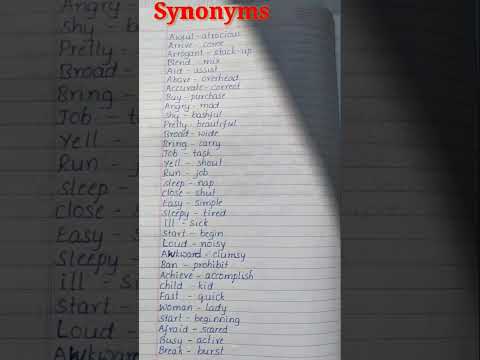 Synonyms
Awful - atrocious
Arrive - come
Arrogant - stuck-up
Blend - mix
Aid - assist
Above - overhead
Accurate - correct
Buy - purchase
Angry - mad
Shy - bashful
Pretty - beautiful
Broad - wide
Bring - carry
Job - task
Yell - shout
Run - job
Sleep - nap
Close - shut
Easy - simple
Sleepy - tired
ill - sick
Start - begin
Loud - noisy
Awkward - clumsy
Ban - prohibit
Achieve - accomplish
Child - kid
Fast - quick
Woman - lady
Start - beginning
Afraid - scared
Busy - active
Break - burst
Angry
Shy - b
Pretty
Broad -
Bring -
Job - ta
Yell -
Run -
Sleep -
Close - s
Easy - s
Sleepy -
ill - si
Start -
Loud -
Awkward